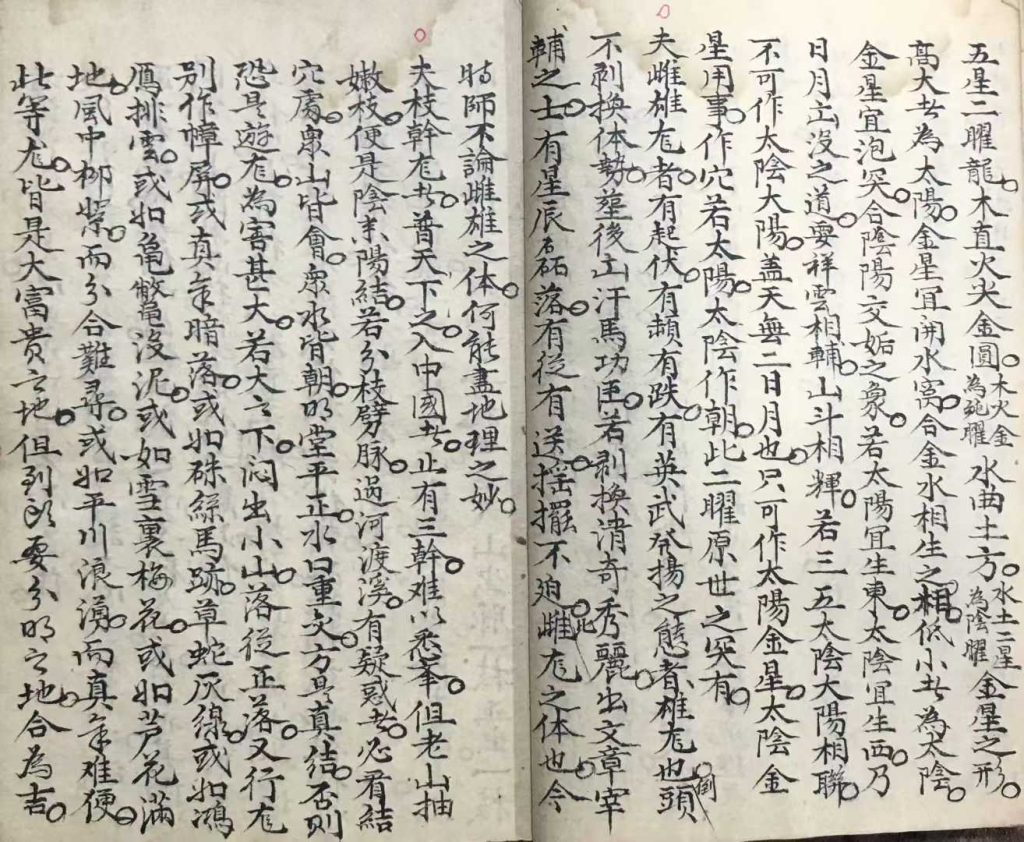 五星二曜龍木直火尖金圓木火金為陽曜水曲土方水土二星為陰曜金星之形
高大者為太陽金星宜開水窩合金水相生之相低小者為太陰
金星宜泡突合陰陽交姤之象若太陽宜生東太陰宜生西乃
日月出沒之道要祥雲相輔山斗相輝若三五太陰大陽相聯
不可作太陰大陽盖天無二日月也只可作太陽金星太陰金
星用事作穴若太陽太陰作朝此二曜原世之突有
夫雌雄龙者有起伏有頼有跌有英武發揚之態者雄龙也頭
不剥換体勢壟後出汗馬功臣若剥換清奇秀麗出文章宰
輔之士有星辰磊落有從有送揺擺不此雌龙之体也今
時師不論雌雄之体何能盡地理之妙
夫枝幹龙者普天下之入中國者止有三幹难以悉峯但老山抽
嫩枝便是陰來陽結若分枝劈脉過河渡溪有疑惑者必看結
穴處衆山皆會衆水皆朝明堂平正水口重文方是真結否則
恐是遊龙為害甚大若大之下闷出小山落從正落又行龙
别作幛屏或真氣暗落或如硃絲馬跡草蛇灰線或如鴻
鴈排雲或如亀鱉沒泥或如雪裏梅花或如芦花滿
地風中柳絮而分合難尋或如平川浪湧而真氣难便
此等龙皆是大富貴之地但到頭要分明之地合為吉